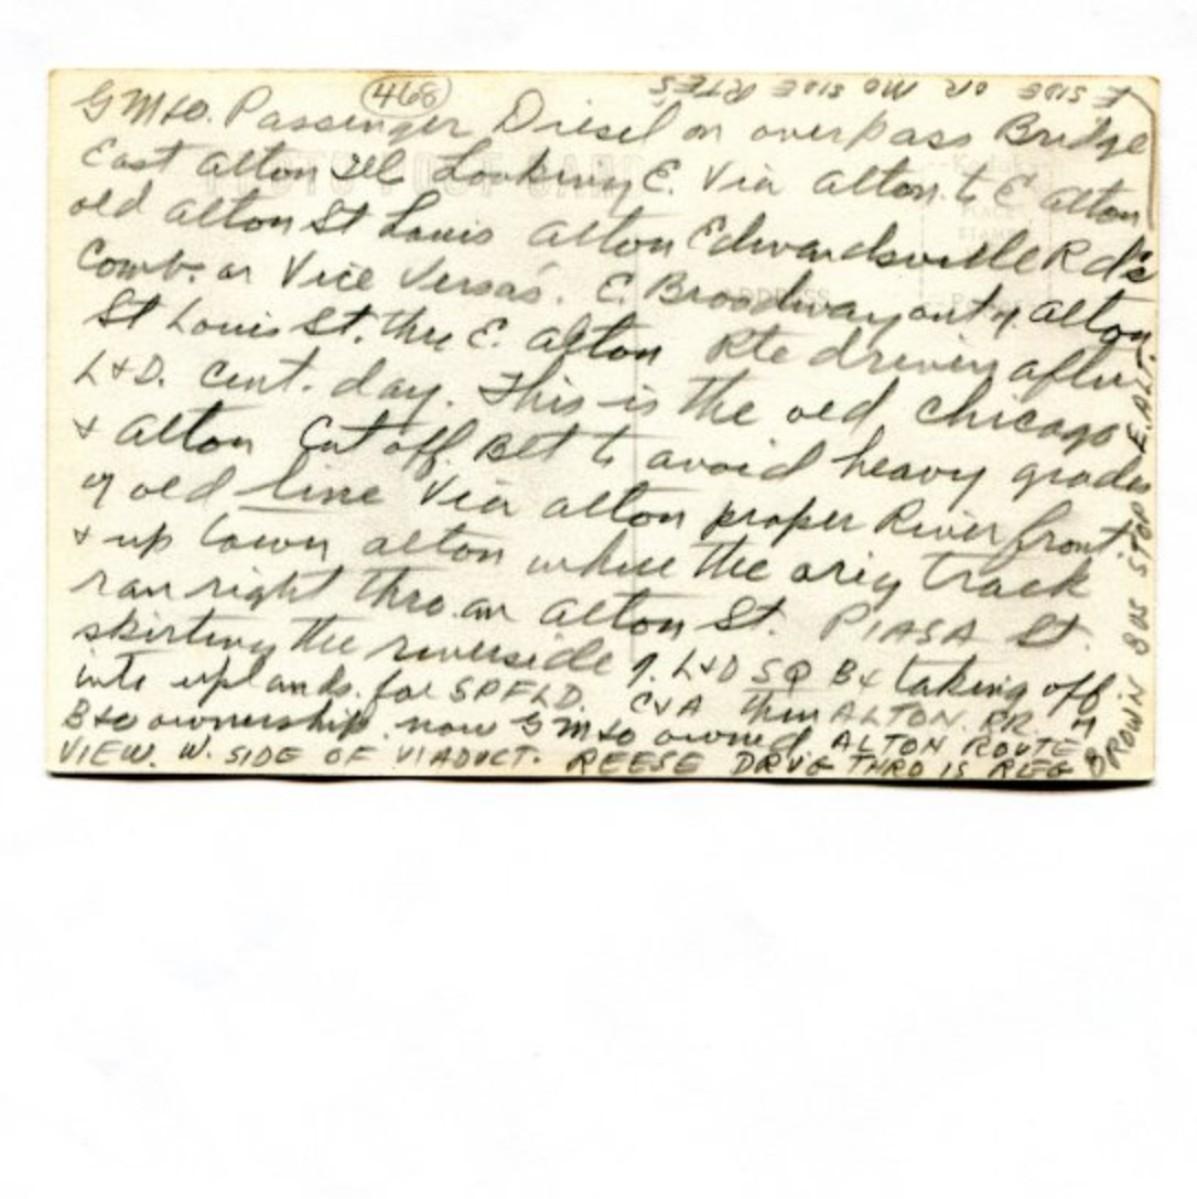 468
G M & O. Passenger Diesel on overpass Bridge
East Alton Ill Looking E. Via Alton to E Alton
old Alton St Louis Alton Edwardsville Rd's
Comb. or Vice Versas. E. Broadway out of Alton
St Louis St. thru E. Alton Rte driven after
L & D. Cent. day. This is the old Chicago
& Alton Cut off Blt to avoid heavy grades
of old line Via Alton proper River front
& up town Alton where the orig track
ran right thro an Alton St. PIASA St.
skirting the riverside of L & D SQ Bx taking off
into uplands for SPFLD. C & A then ALTON. RR. of
B & O ownership now G M & O owned. ALTON ROUTE
VIEW. W. SIDE OF VIADUCT. REESE DRUG THRO IS REG
BROWIN BUS STOP E. ALT.
E SIDE OR MO SIDE RTES